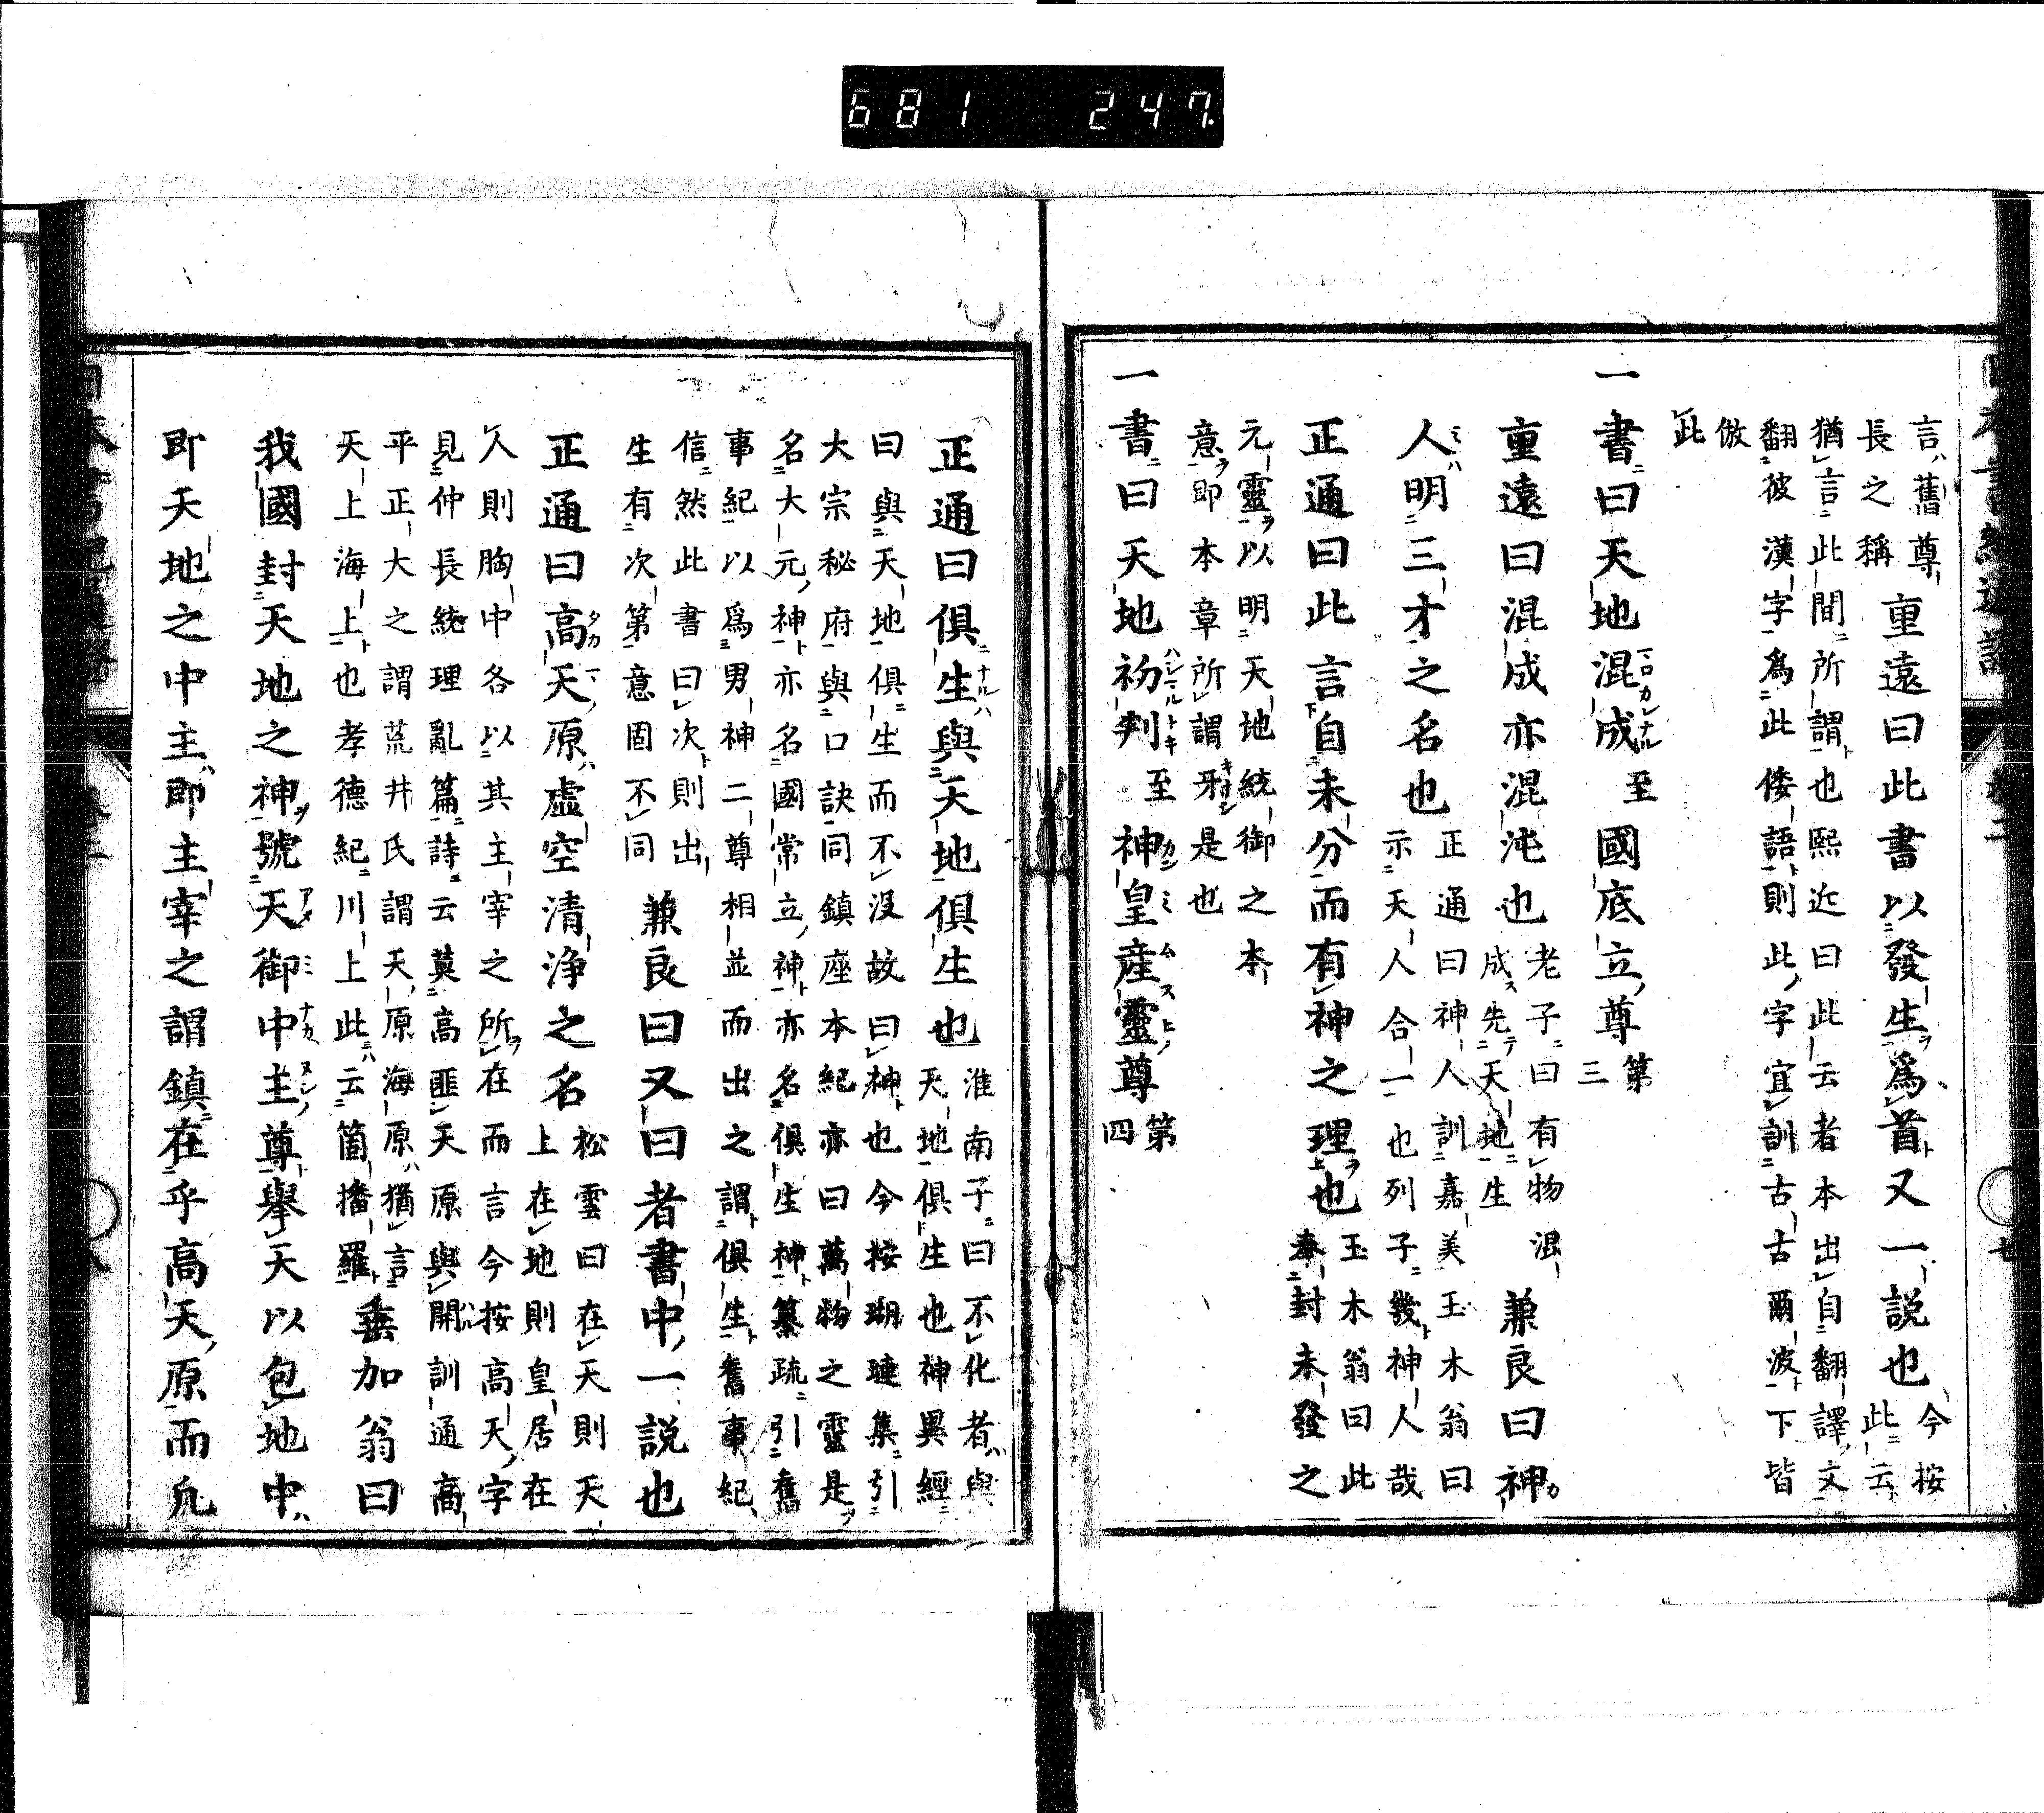 言舊尊
長之稱
重遠曰此書以發生爲首又一説也
今按
此云
猶言此間所謂也熙近曰此云者本出自翻譯文
翻彼漢字爲此倭語則此字宜訓古古爾波下皆
倣
此
一書曰天地混成至國底立尊
第
三
重遠曰混成亦混沌也
老子曰有物混
成先天地生
兼良曰神
人明三才之名也
正通曰神人訓嘉美玉木翁曰
示天人合一也列子幾神人哉
正通曰此言自未分而有神之理也
玉木翁曰此
奉封未發之
元靈以明天地統御之本
意即本章所謂牙是也
一書曰天地初判至神皇産靈尊
第
四
正通曰俱生與天地俱生也
淮南子曰不化者與
天地俱生也神異經
曰與天地俱生而不没故曰神也今按瑚璉集引
大宗秘府與口訣同鎮座本紀亦曰萬物之靈是
名大元神亦名國常立神亦名俱生神纂疏引舊
事紀以爲男神二尊相並而出之謂俱生舊事紀
信然此書曰次則出
生有次第意固不同
兼良曰又曰者書中一説也
正通曰高天原虚空清浄之名
松雲曰在天則天
上在地則皇居在
人則胸中各以其主宰之所在而言今按高天字
見仲長統理亂篇詩云莫高匪天原與開訓通高
平正大之謂荒井氏謂天原海原猶言
天上海上也孝德紀川上此云箇播羅
垂加翁曰
我國封天地之神號天御中主尊舉天以包地中
即天地之中主即主宰之謂鎮在乎高天原而凡
681 247